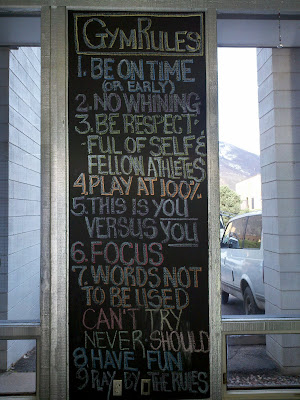 GYMRULES
1. BE ON TIME
(OR EARLY)
2. NO WHINING
3. BE RESPECT-
FUL OF SELF &
FELLOW ATHLETES
4. PLAY AT 100%
5. THIS IS YOU
VERSUS YOU
6. FOCUS
7. WORDS NOT
TO BE USED
CAN'T TRY
NEVER SHOULD
8 HAVE FUN
9 PLAY BY THE RULES